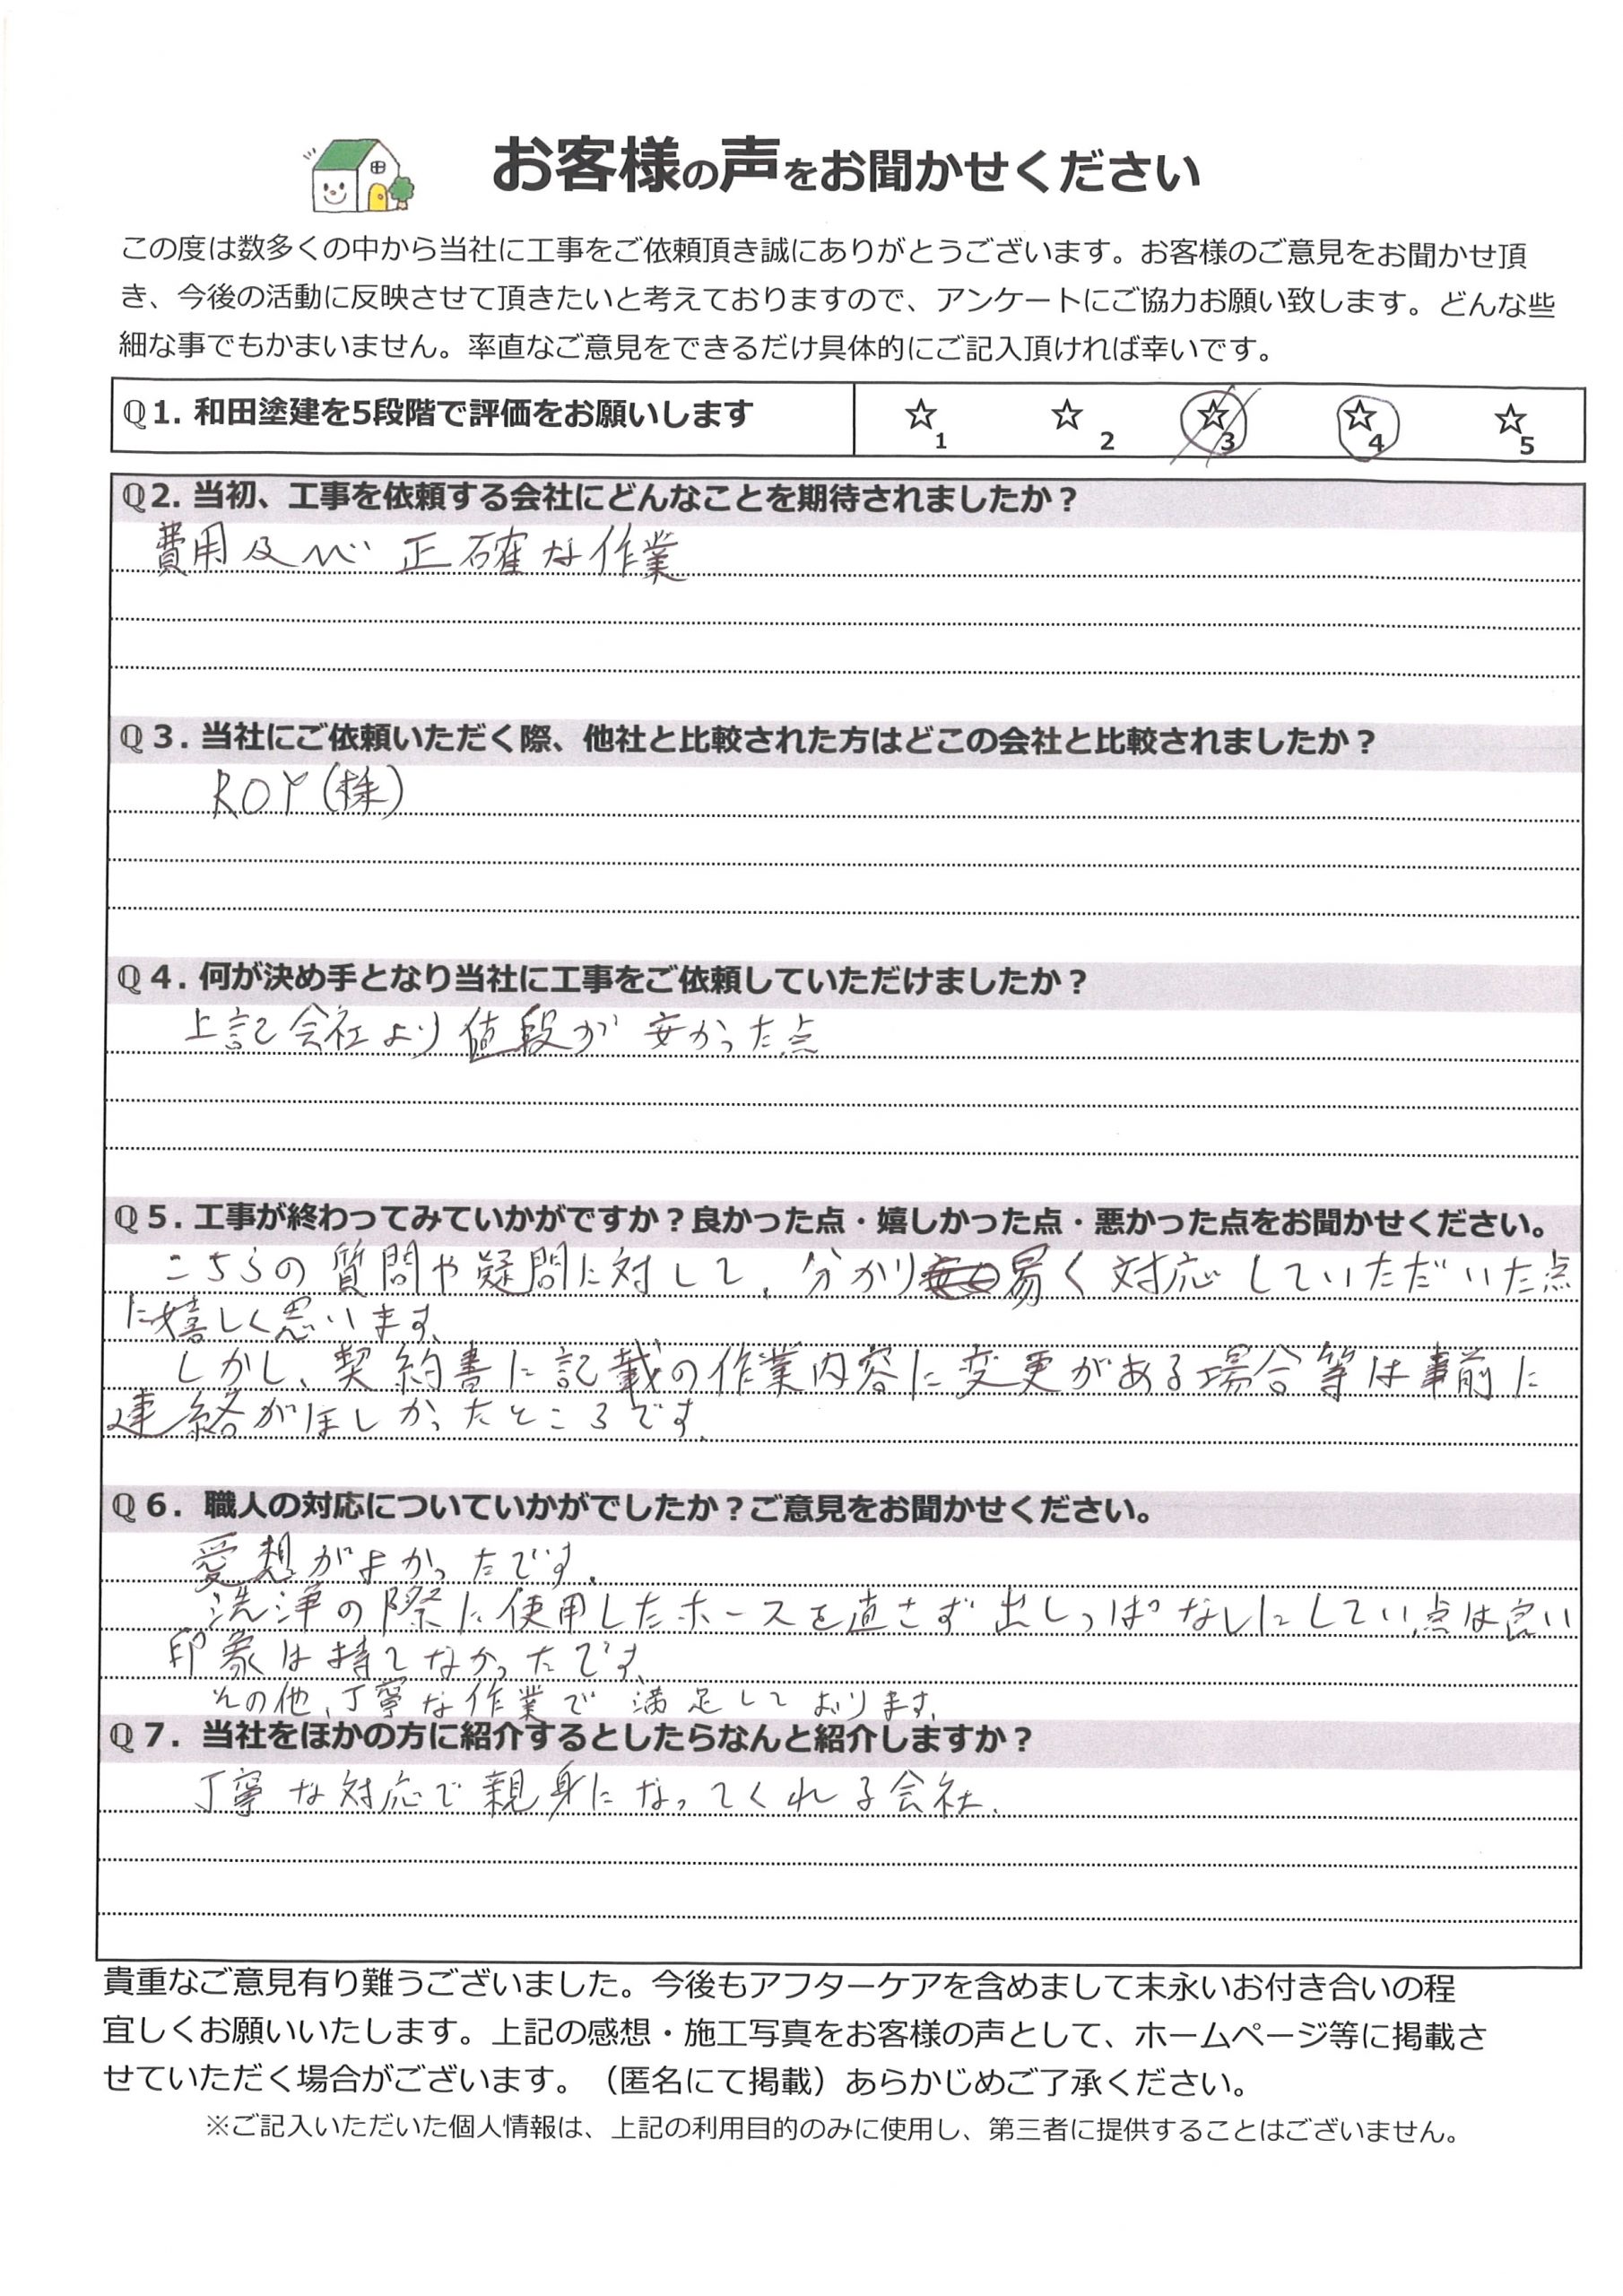 お客様の声をお聞かせください
この度は数多くの中から当社に工事をご依頼頂き誠にありがとうございます。お客様のご意見をお聞かせ頂
き、今後の活動に反映させて頂きたいと考えておりますので、アンケートにご協力お願い致します。どんな些
細な事でもかまいません。率直なご意見をできるだけ具体的にご記入頂ければ幸いです。
Q1. 和田塗建を5段階で評価をお願いします ☆1 ☆2 ☆3 ☆4 ☆5
Q2. 当初、工事を依頼する会社にどんなことを期待されましたか？
費用及び 正確な作業
Q3. 当社にご依頼いただく際、他社と比較された方はどこの会社と比較されましたか？
ROY(株)
Q4. 何が決め手となり当社に工事をご依頼していただけましたか？
上記会社より値段が安かった点
Q5. 工事が終わってみていかがですか？良かった点・嬉しかった点・悪かった点をお聞かせください。
こちらの質問や疑問に対して、分かり易く対応していただいた点
に嬉しく思います。
しかし、契約書に記載の作業内容に変更がある場合等は事前に
連絡がほしかったところです。
Q6. 職人の対応についていかがでしたか？ご意見をお聞かせください。
愛想がよかったです。
洗浄の際に使用したホースを直さず出しっぱなしにしてい点は良い
印象は持てなかったです。
その他、丁寧な作業で満足しております。
Q7. 当社をほかの方に紹介するとしたらなんと紹介しますか？
丁寧な対応で親身になってくれる会社.
貴重なご意見有り難うございました。今後もアフターケアを含めまして末永いお付き合いの程
宜しくお願いいたします。上記の感想・施工写真をお客様の声として、ホームページ等に掲載さ
せていただく場合がございます。（匿名にて掲載）あらかじめご了承ください。
※ご記入いただいた個人情報は、上記の利用目的のみに使用し、第三者に提供することはございません。